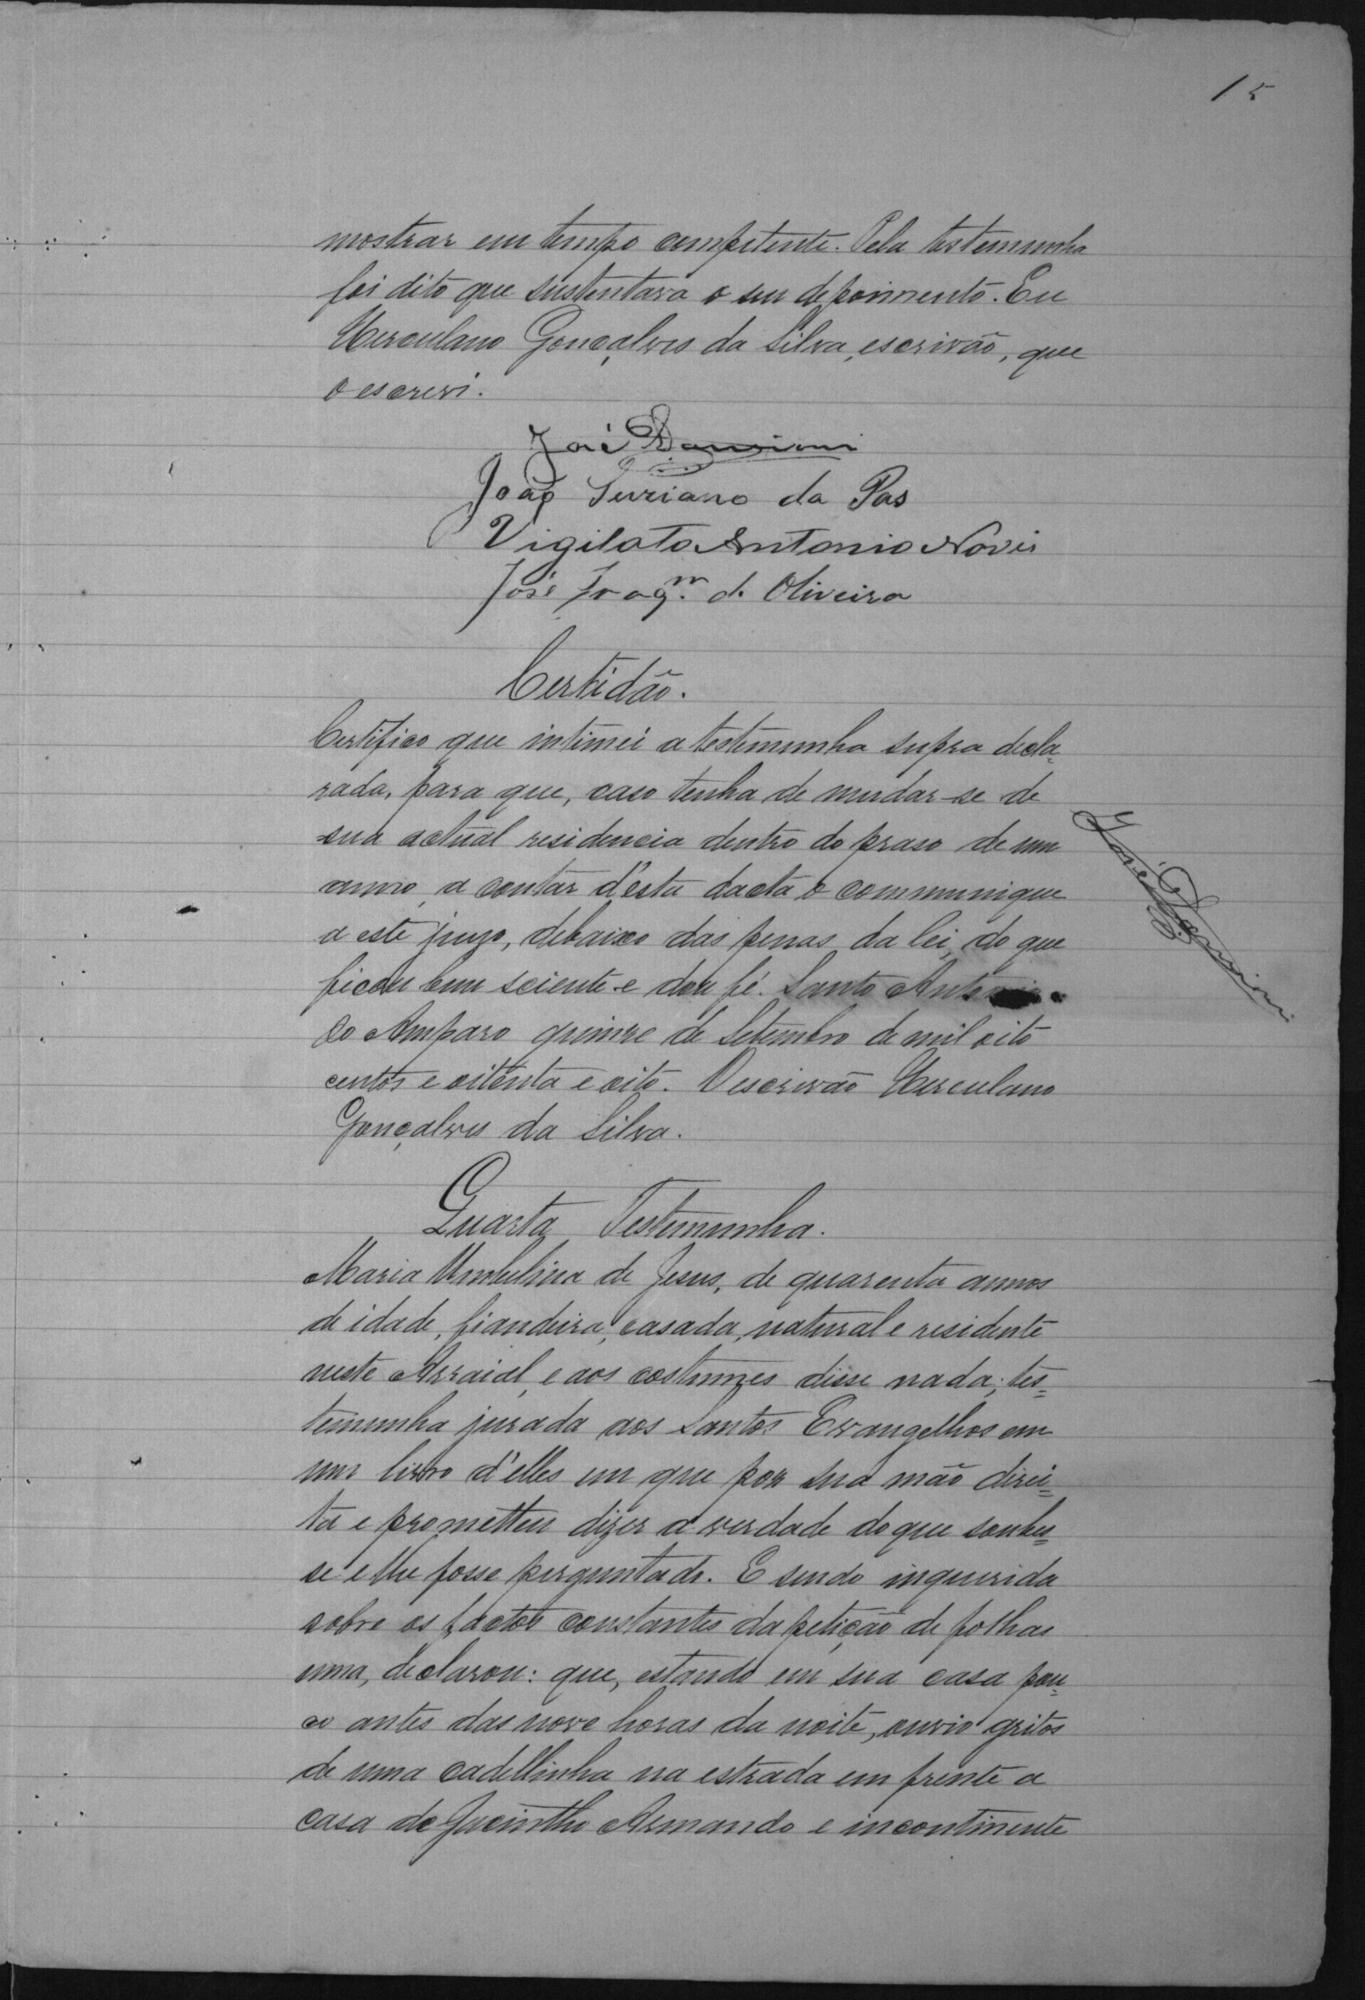 15
mostrar em tempo competente. Pela testemunha
foi dito que sustentava o seu depoimento. Eu
Herculano Gonçalves da Silva, escrivão, que
o escrevi.
José
João Suriano da Pas
Vigilato Antonio Novis
José Frag.m de Oliveira
Certidão.
Certifico que intimei a testemunha supra decla-
rada, para que, caso tenha de mudar-se de
sua actual residencia dentro do praso de um
anno, a contar d'esta dacta o communique
a este juizo, debaixo das penas da lei, do que
ficou bem sciente e dou fé. Santo Antonio
do Amparo quinze de Setembro de mil oito
centos e oitenta e oito. O escrivão Herculano
Gonçalves da Silva.
José
Quarta Testemunha.
Maria Umbelina de Jesus, de quarenta annos
de idade, fiandeira, casada, natural e residente
neste Arraial, e aos costumes disse nada; tes=
temunha jurada aos Santos Evangelhos em
um livro d'elles em que poz sua mão direi=
ta e prometteu dizer a verdade do que soubes=
se e lhe fosse perguntado. E sendo inquerida
sobre os factos constantes da petição de folhas
uma, declarou: que, estando em sua casa pou=
co antes das nove horas da noite, ouvio gritos
de uma cadellinha na estrada em frente a
casa de Jacintho Armando e incontinente